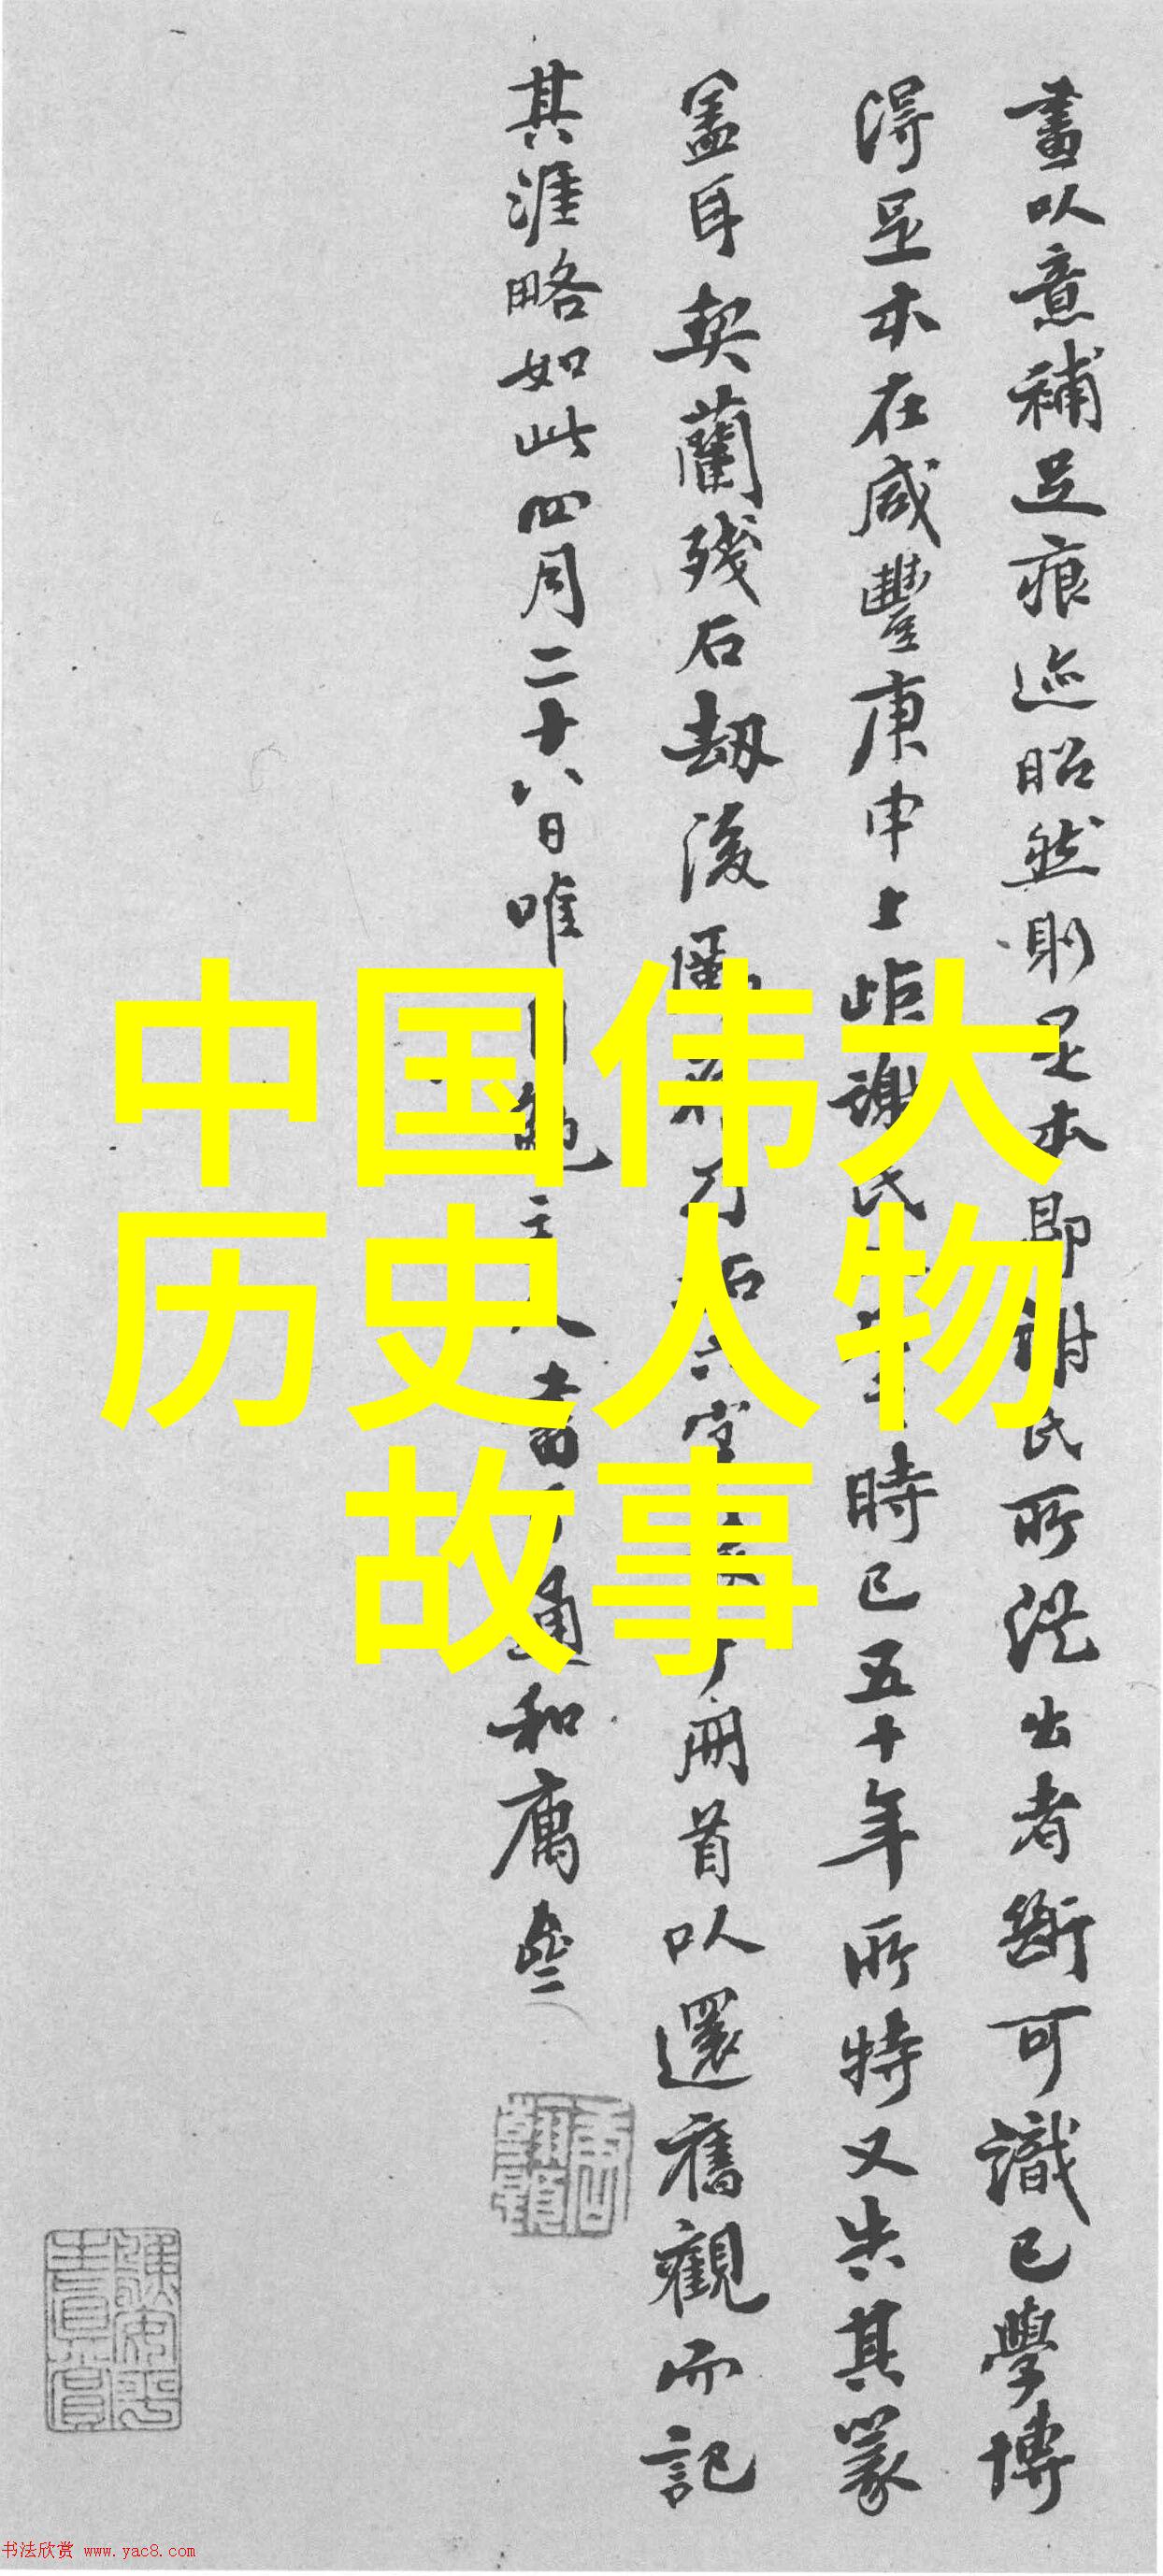 畫以意補足痕迹昭然則是本即謝氏所從出者斷可識已學博
得足本在咸豐庚申上距謝氏時已五十年所特又失其篆
蓋耳契蘭殘石劫後冊首以還舊觀而記
其涯略如此四月二十八日唯和唐
中国伟大
历史人物
故事
书法欣赏 www.yac8.com